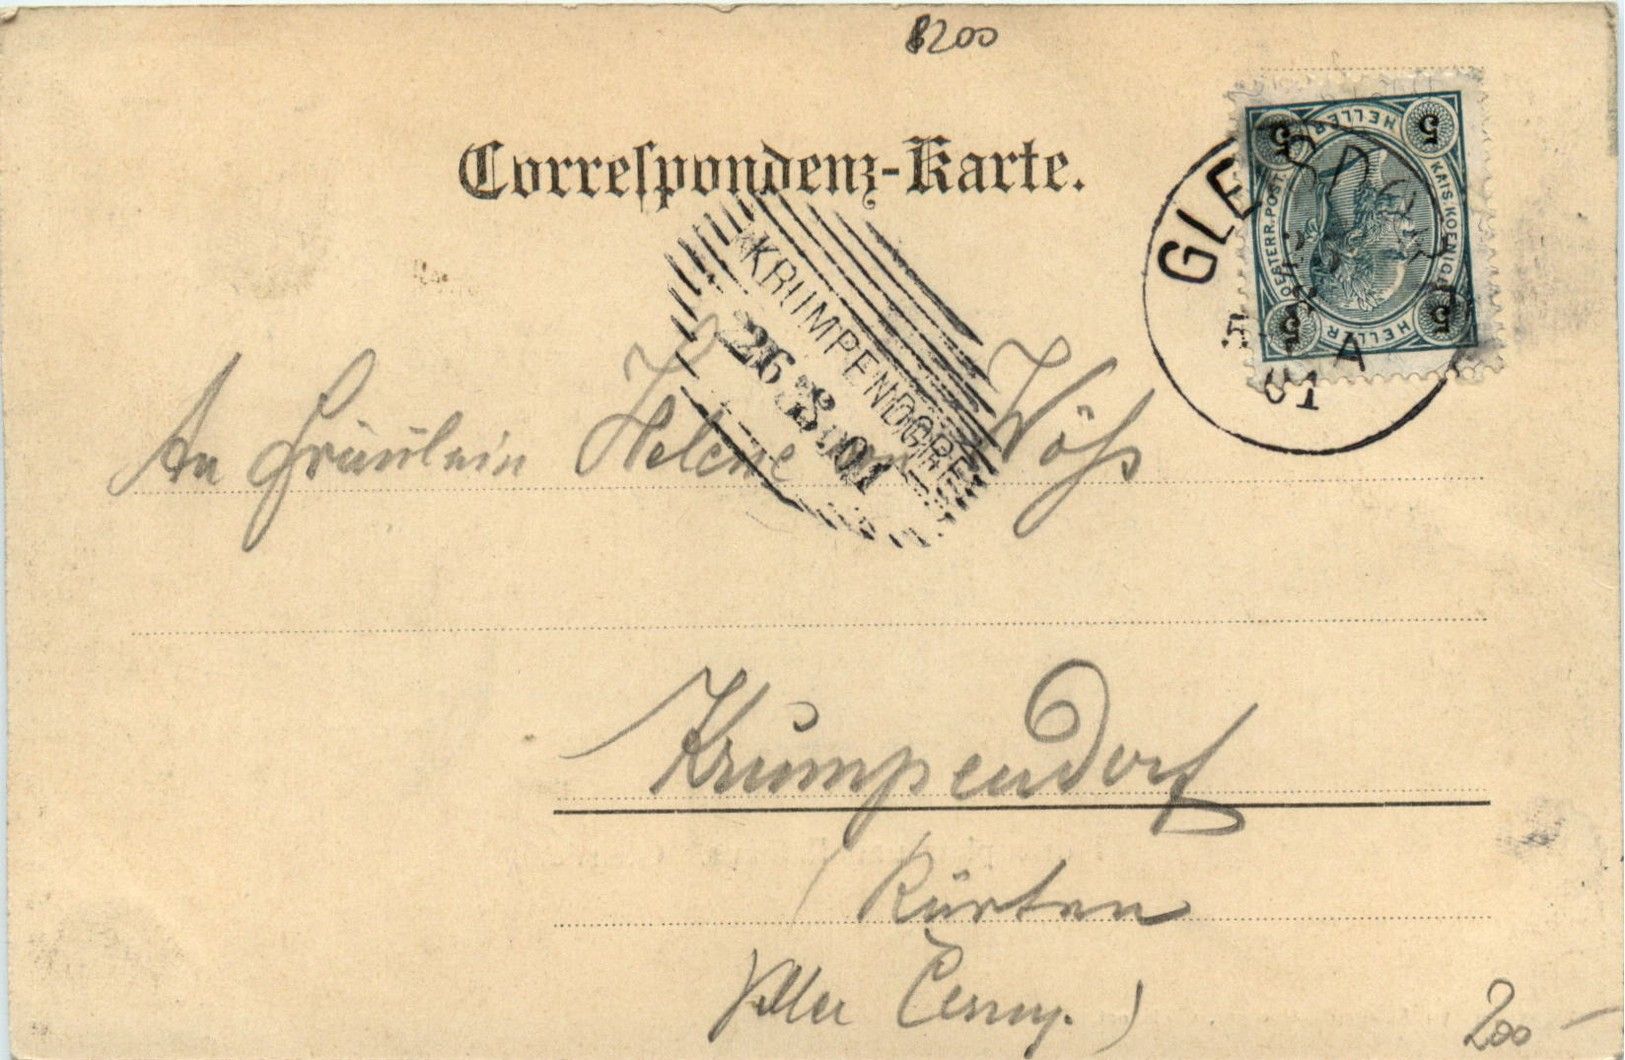 8200
Correspondenz-Karte.
5 HELLER 5
KAIS. KOENIGL.
OESTERR. POST.
5 HELLER 5
GLEISDORF
A
KRUMPENDORF
26 8 01
An Fräulein Helene von Wöß
Krumpendorf
Kärnten
Villa Černy.)
200 -